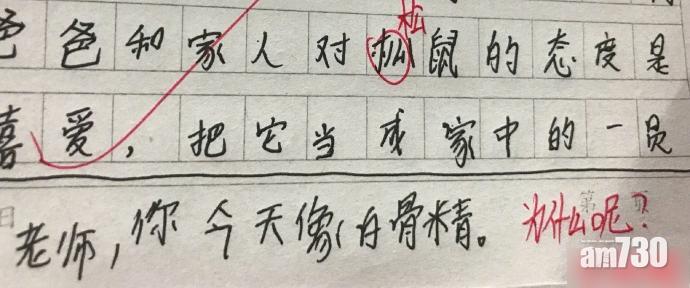 松
爸爸和家人对松鼠的态度是
喜爱，把它当成家中的一员
老师，你今天像白骨精。为什么呢？
am730